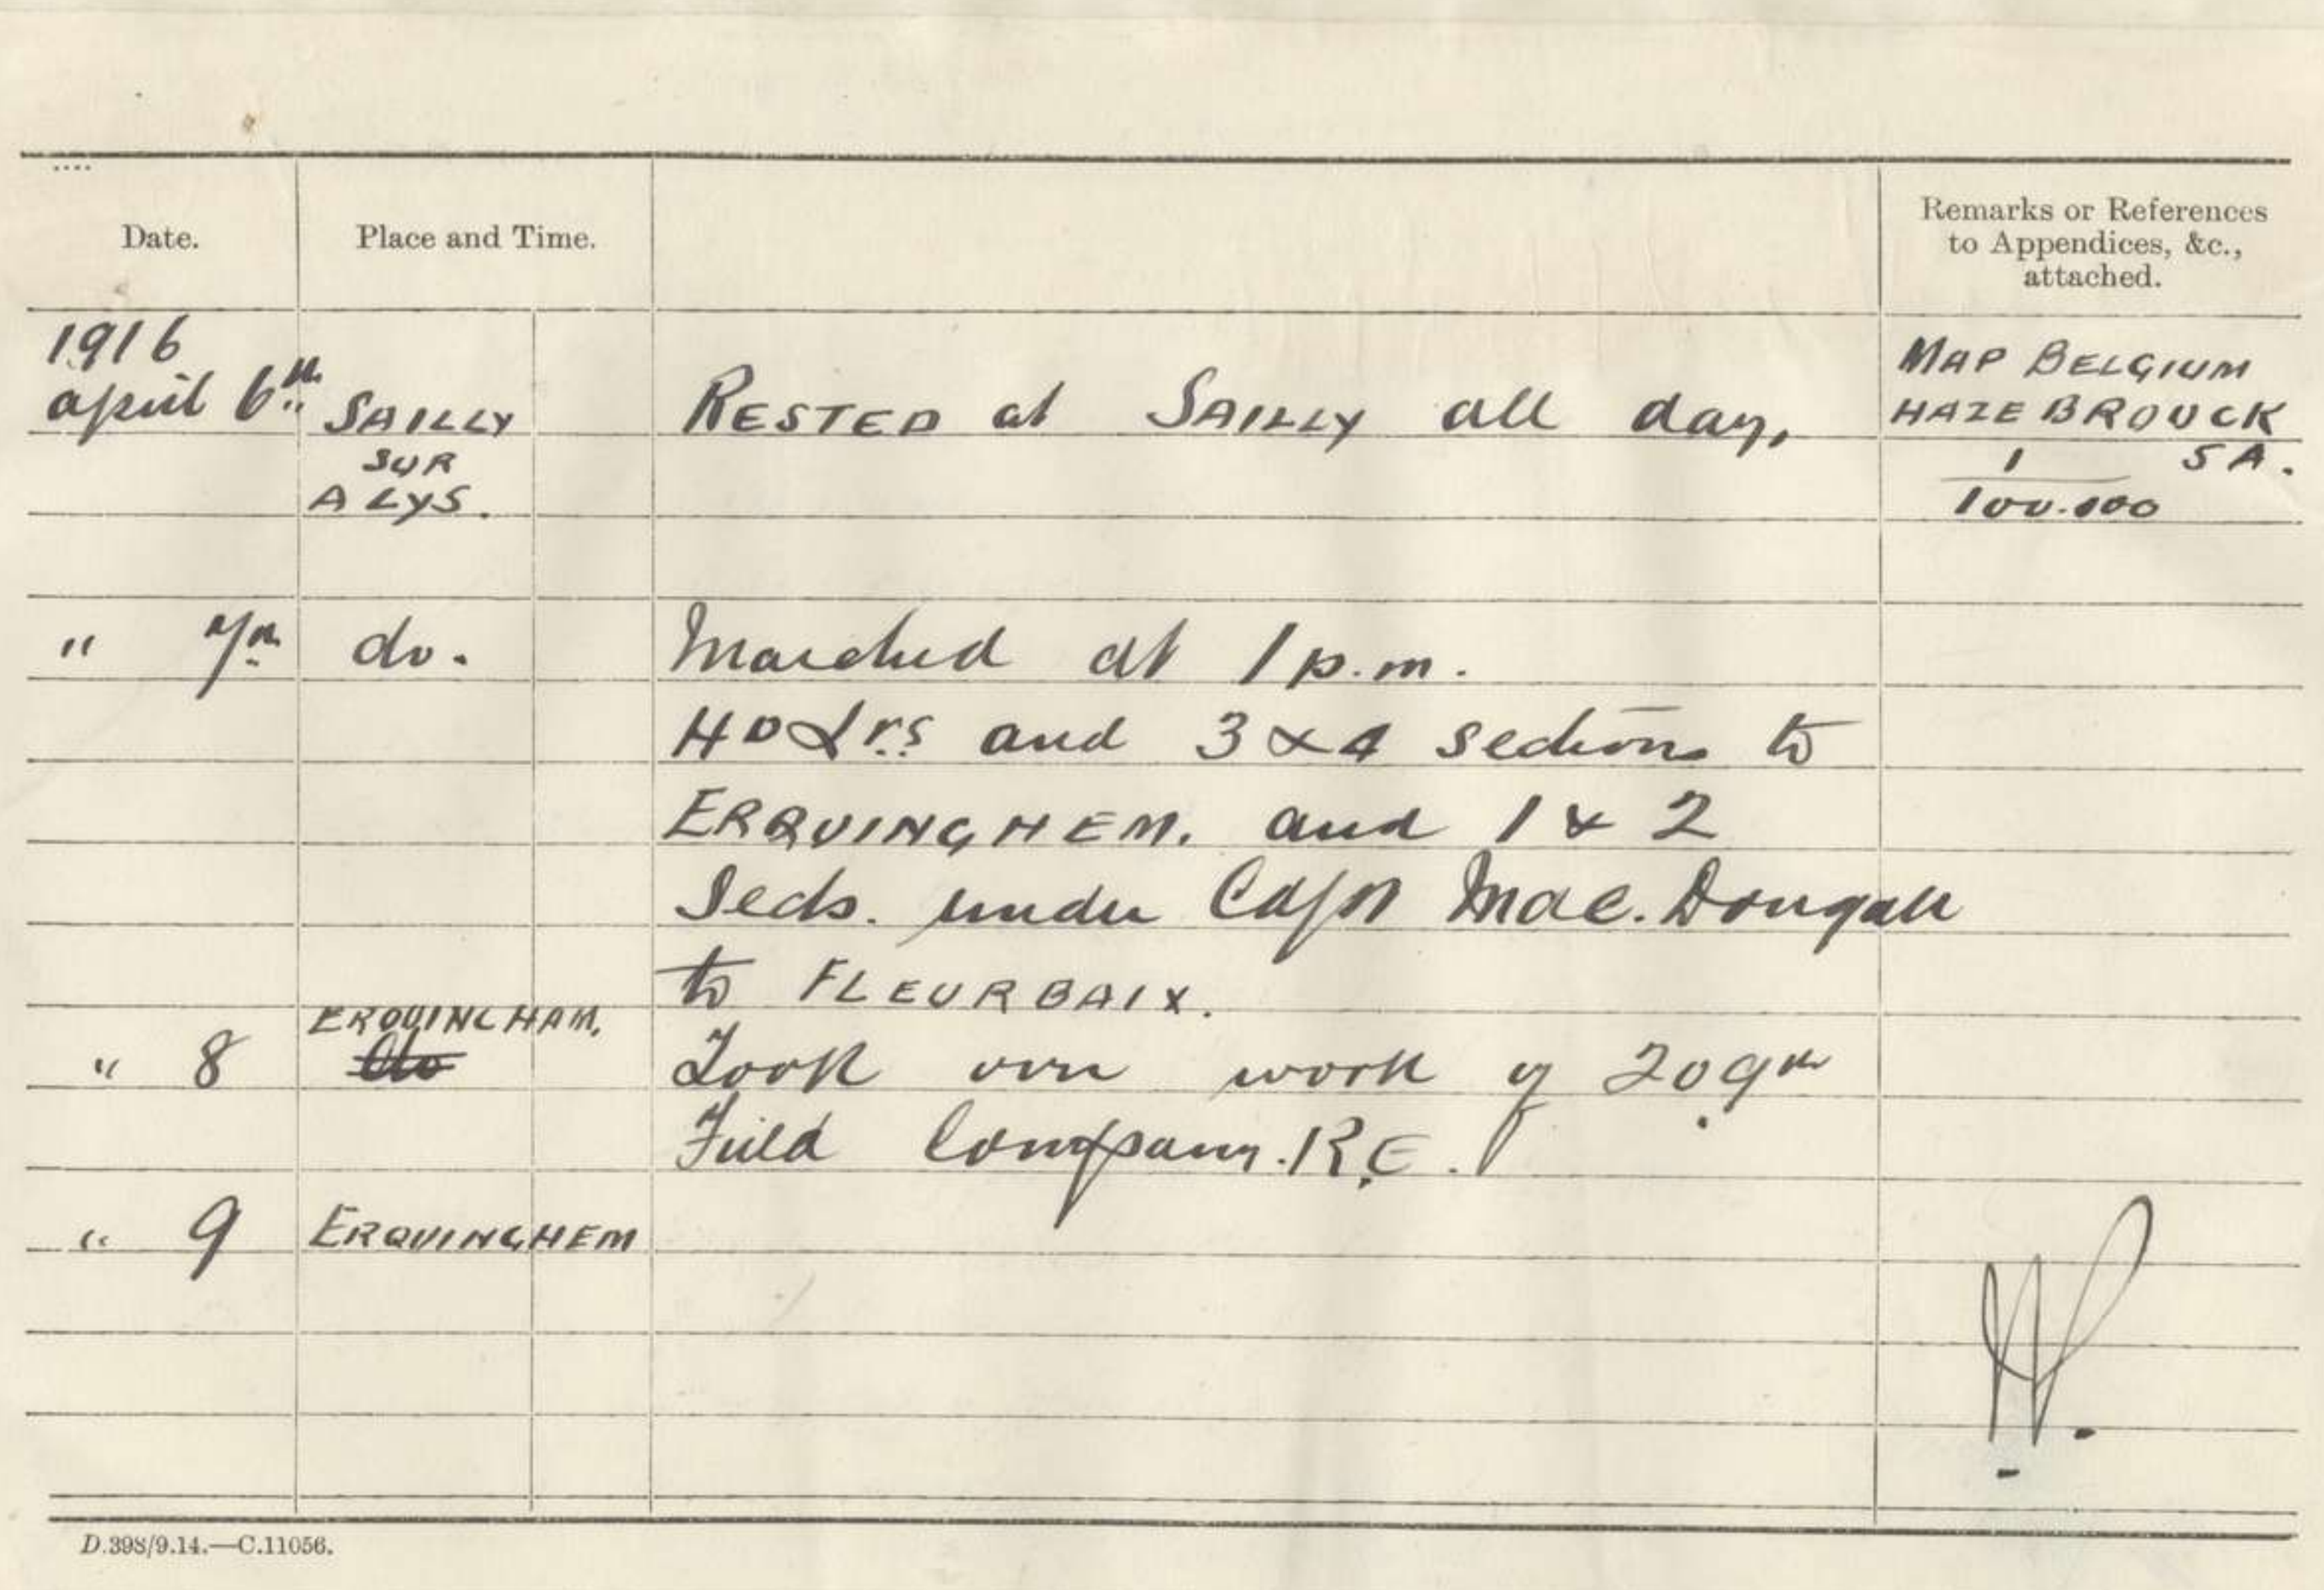 Date.
Place and Time.
Remarks or References
to Appendices, &c.,
attached.
1916
april 6th
SAILLY
SUR
A LYS.
RESTED at SAILLY all day,
MAP BELGIUM
HAZEBROUCK
1 5A.
100.000
" 7th do. Marched at 1 p.m.
HDQrs and 3 & 4 sections to
ERQUINGHEM. and 1 & 2
Secs. under Capt Mac.Dougall
to FLEURBAIX.
ERQUINGHAM.
" 8 do Took over work of 209th
Field Company.R.E.
" 9 ERQUINGHEM
D.398/9.14.—C.11056.